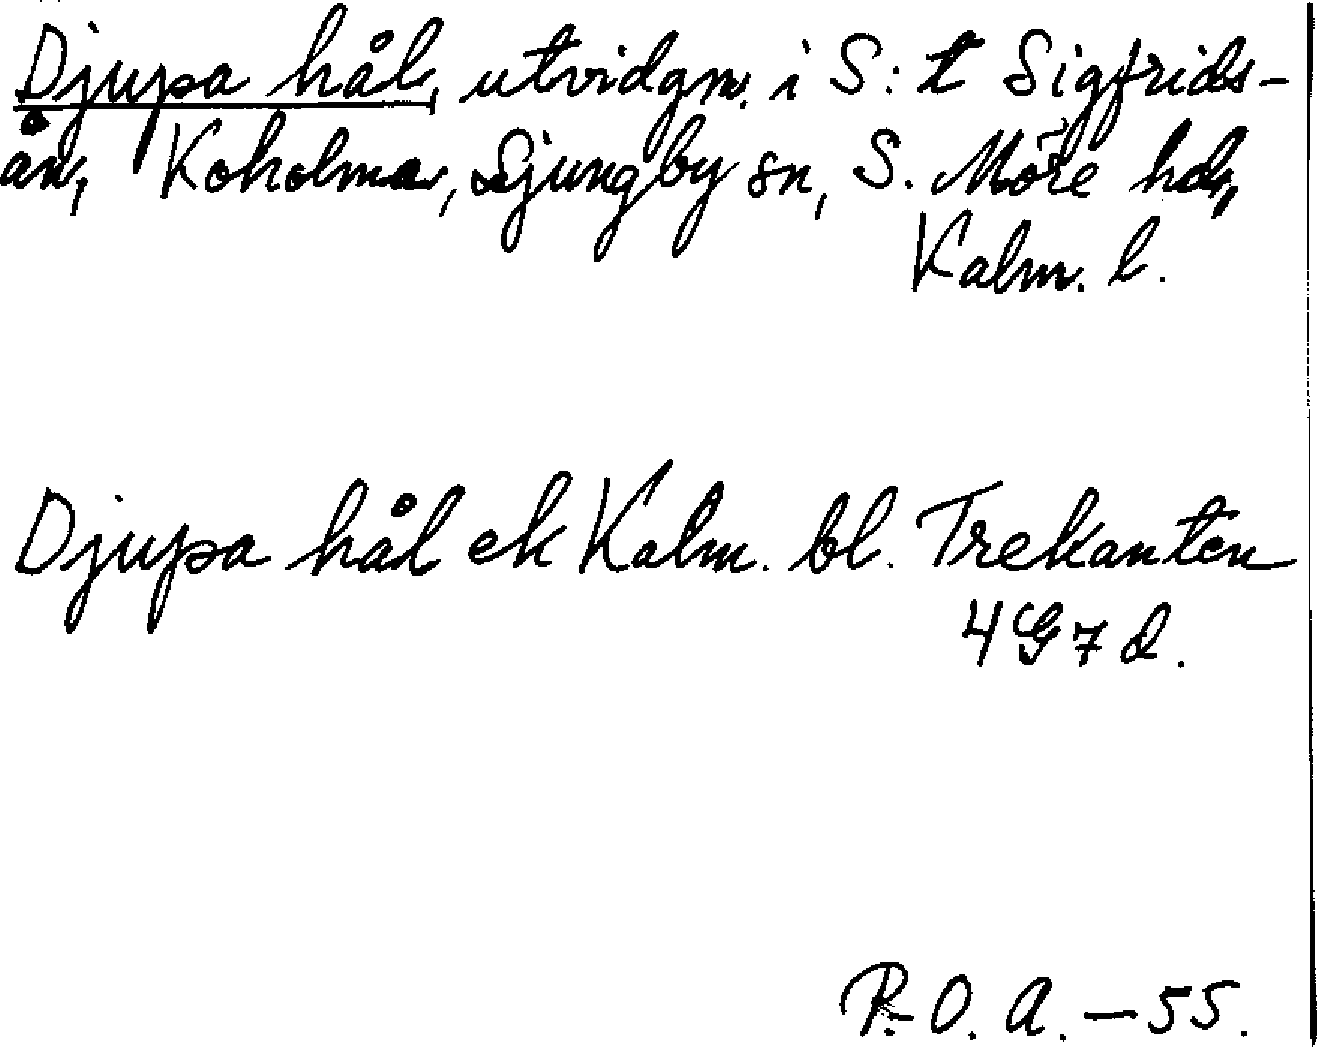 Djupa hål, utvidgn. i S:t Sigfrids-
ån, Koholma, Ljungby sn, S. Möre hd,
Kalm. l.
Djupa hål ek Kalm. bl. Trekanten
4G7d.
R. O. A. - 55.